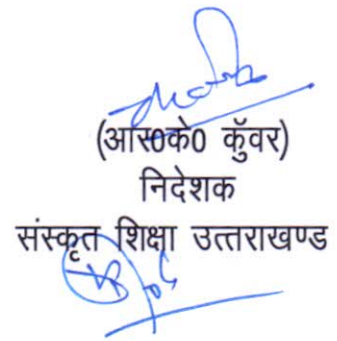 (आर0के0 कुॅवर)
निदेशक
संस्कृत शिक्षा उत्तराखण्ड